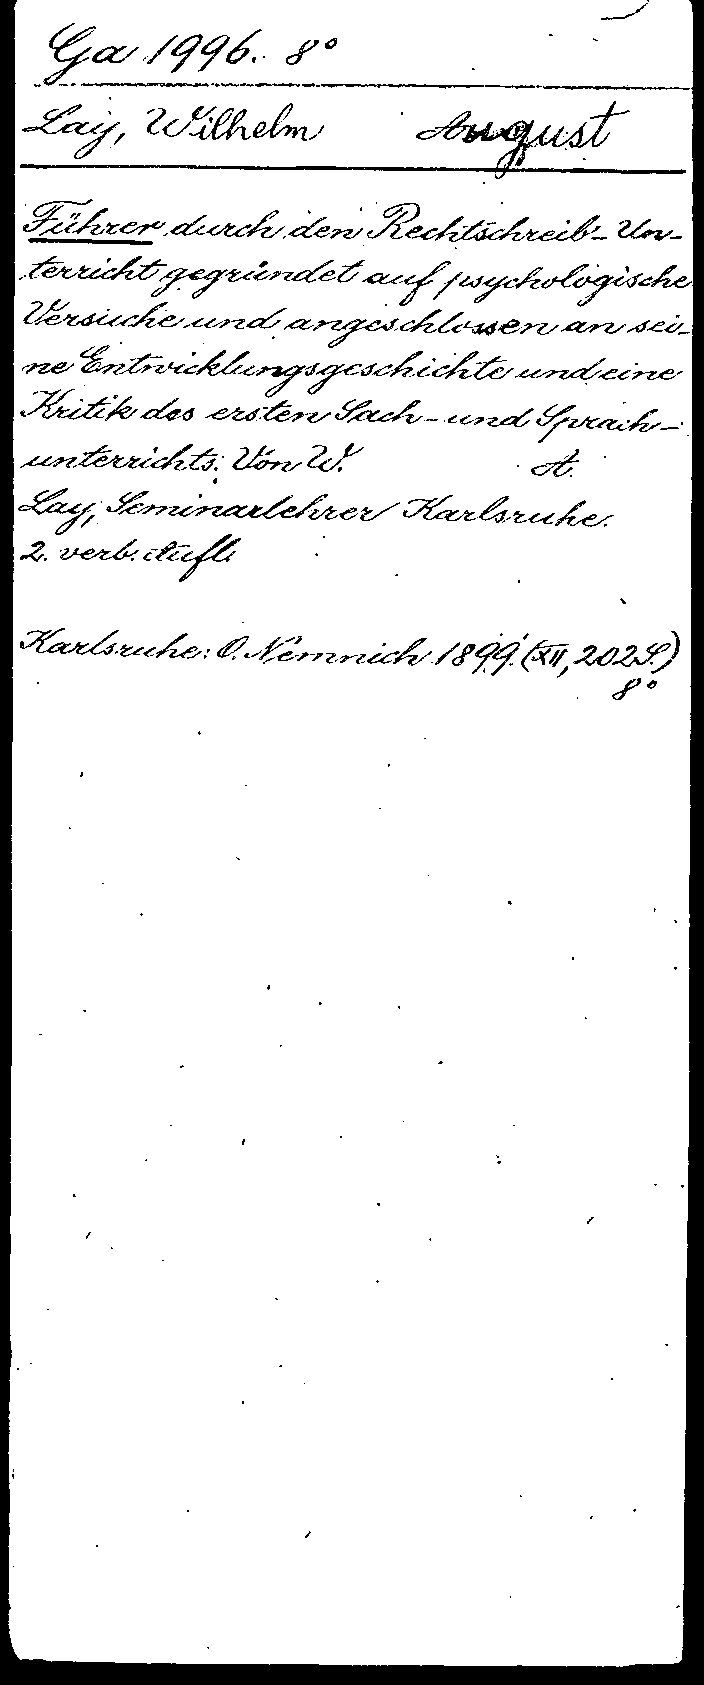 Ga 1996. 8°
Lay, Wilhelm August
Führer durch den Rechtschreib-Un-
terricht gegründet auf psychologische
Versuche und angeschlossen an sei-
ne Entwicklungsgeschichte und eine
Kritik des ersten Sach- und Sprach-
unterrichts. Von W. A.
Lay, Seminarlehrer Karlsruhe.
2. verb. Aufl.
Karlsruhe: O. Nemnich 1899. (XII, 202 S.)
8°